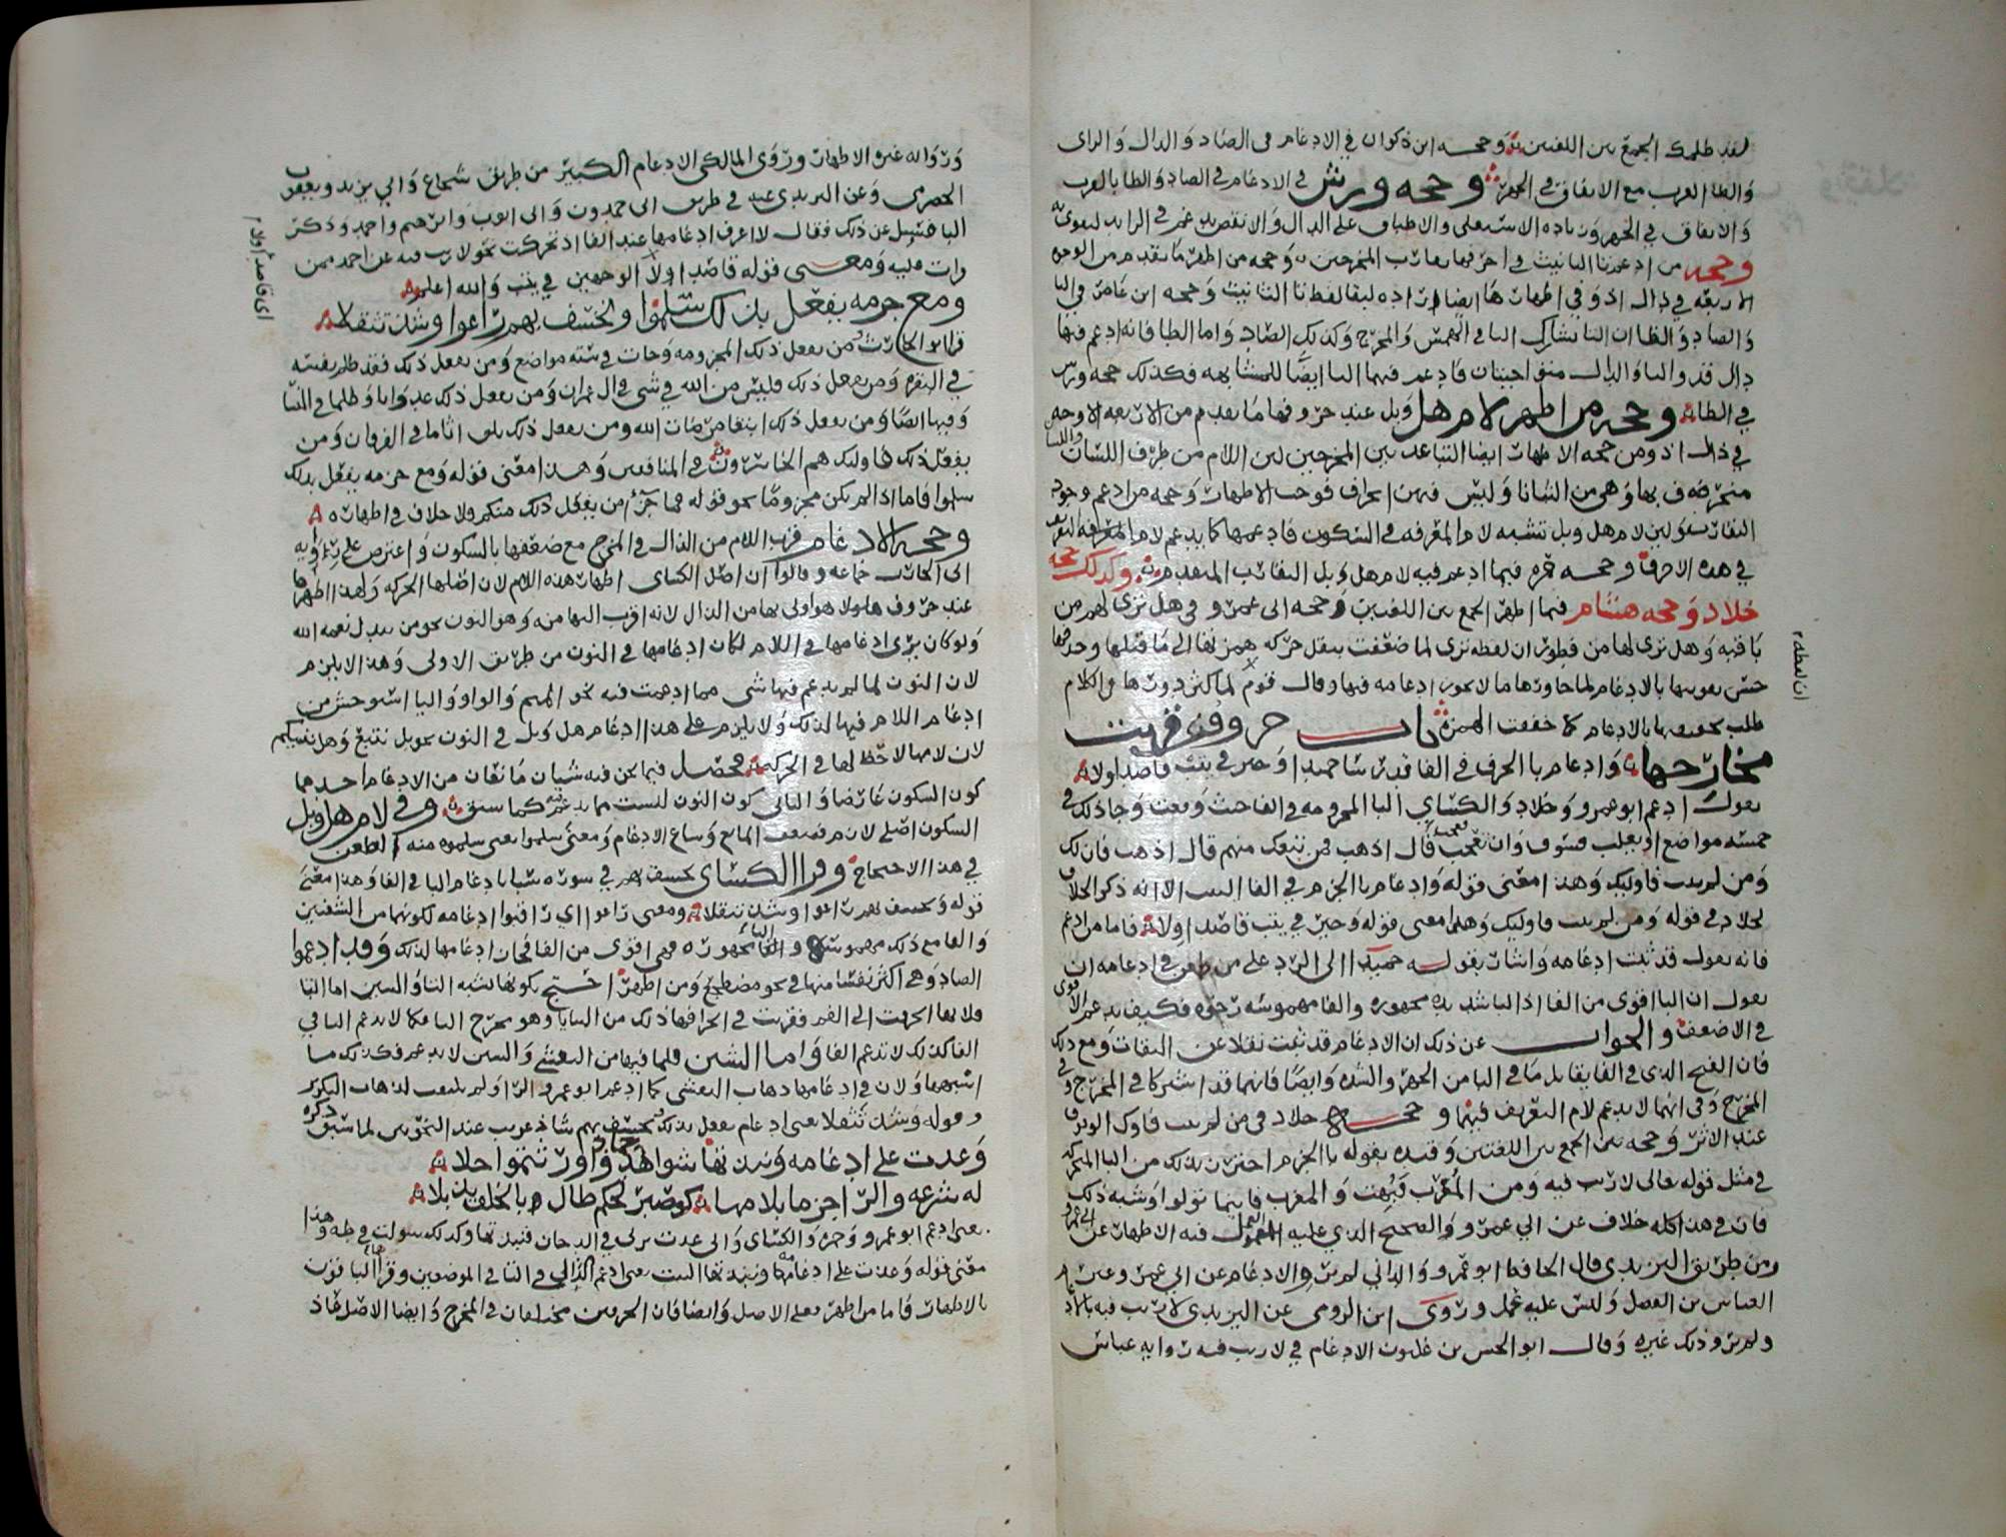 لقد ظلمك الجمع بين اللغتين وحجه ابن ذكوان في الادغام في الضاد والدال والزاى
والظا القرب مع الاتفاق في الجهر وحجه ورش في الادغام في الضاد والظا بالقرب
والاتفاق في الجهر وزياده الاستعلى والاطباق على الدال
وحجه من ادغم تا التانيث في احرفها تقارب المخرجين وحجه من اظهر ما تقدم من الوجوه
الاربعه في دال اذ وفي اظهارها ايضا ارادة لبقا لفظ تا التانيث وحجه ابن عامر في
والصاد والظا ان التا تشارك في الهمس والمخرج وكذلك الصاد واما الظا فانه ادغم فيها
دال قد والتا والدال متواخيتان فادغم فيها التا ايضا للمشابهه فكذلك حجه ورش
في الظا وحجه من اظهر لام هل وبل عند حروفها ما تقدم من الاربعه الاوجه
في ذال اذ ومن حجه الاظهار ايضا التباعد بين المخرجين لان اللام من طرف اللسان
منحرفه وهي من الثنايا وليس فيهن انحراف فوجب الاظهار وحجه من ادغم وجود
التقارب ولان لام هل وبل تشبه لام المعرفه في السكون فادغمها كما يدغم لام المعرفه
في هذه الاحرف وحجه حمزه فيما ادغم فيه لام هل وبل التقارب المتقدم وكذلك حجه
خلاد وحجه هشام فيما اظهر الجمع بين اللغتين وحجه ابى عمرو في هل ترى لهم من
باقيه وهل ترى لها من فطور ان لفظه ترى لما ضعفت بنقل حركه همزتها الى ما قبلها وحذفها
حسن تقويتها بالادغام لما جاورها ما لا يجوز ادغامه فيها وقال قوم لما كثر دورها في الكلام
طلب تخفيفها بالادغام كما خففت الهمزة باب حروف قربت
مخارجها وادغام با الجزم في الفا قد رسا حميدا وخير في يتب قاصدا ولا
يقول ادغم ابو عمرو وخلاد والكساى البا المجزومه في الفا حيث وقعت وجا ذلك في
خمسه مواضع او يغلب فسوف وان تعجب فعجب قال اذهب فمن تبعك منهم قال اذهب فان لك
ومن لم يتب فاوليك وهذا معنى قوله وادغام با الجزم في الفا البيت الا انه ذكر الخلاف
لخلاد في قوله ومن لم يتب فاوليك وهذا معنى قوله وخير في يتب قاصدا ولا فاما من ادغم
فانه يقول قد ثبت ادغامه واشار بقوله حميدا الى الرد على من طعن في ادغامه ان
يقول ان البا اقوى من الفا اذ البا شديده مجهوره والفا مهموسه رخوه فكيف يدغم الاقوى
في الاضعف والجواب عن ذلك ان الادغام قد ثبت نقلا عن الثقات ومع ذلك
فان الذى في الفا يقابل ما في البا من الجهر والشده وايضا فانهما قد اشتركا في المخرج وفي
المخرج وفي انهما لا يدغم لام التعريف فيهما وحجه خلاد في من لم يتب فاوليك الوقوف
عند الاثر وحجه بين الجمع بين اللغتين وقيده بقوله با الجزم احترز بذلك من البا المتحركه
في مثل قوله تعالى لا ريب فيه ومن المغرب فبهت والمغرب فاينما تولوا وشبه ذلك
فان في هذا كله خلاف عن ابي عمرو والصحيح الذي عليه العمل فيه الاظهار عن ابى عمرو
ومن طريق اليزيدى قال الحافظ ابو عمرو الداني لم يرو الادغام عن ابي عمرو غير
العباس بن الفضل وليس عليه عمل وروى ابن الرومى عن اليزيدى لا ريب فيه بالادغام
ولم يرو ذلك غيره وقال ابو الحسن بن غلبون الادغام في لا ريب فيه روايه عباس
ان لفظه
ورواه غيره الاظهار وروى المالكى الادغام الكبير من طريق شجاع وابي يزيد ويعقوب
الحضرمى وعن اليزيدى عنه في طريق ابى حمدون وابى ايوب وابرهيم واحمد وذكر
فسيل عن ذلك فقال لا اعرف ادغامها عند الفا اذ تحركت نحو لا ريب فيه عن احد ممن
قرات عليه ومعنى قوله قاصدا ولا الوجهين في يتب والله اعلم
ومع جزمه يفعل بذلك سلموا ونخسف بهم راعوا وشذ تثقلا
قرا ابو الحارث من يفعل ذلك المجزومه وجات في سته مواضع ومن يفعل ذلك فقد ظلم نفسه
في البقره ومن يفعل ذلك فليس من الله في شى في ال عمران ومن يفعل ذلك عدوانا وظلما في النسا
وفيها ايضا ومن يفعل ذلك ابتغا مرضات الله ومن يفعل ذلك يلق اثاما في الفرقان ومن
يفعل ذلك فاوليك هم الخاسرون في المنافقين وهذا معنى قوله ومع جزمه يفعل بذلك
سلموا فاما اذا لم يكن مجزوما نحو قوله فما جزا من يفعل ذلك منكم فلا خلاف في اظهاره
وحجه الادغام قرب اللام من الذال في المخرج مع ضعفها بالسكون واعترض على روايه
ابى الحارث جماعه وقالوا ان اصل الكساى اظهار هذه اللام لان اصلها الحركه ولهذا اظهرها
عند حروف هاولا هو اولى بها من الذال لانه اقرب اليها منه وهو النون نحو من يبدل نعمه الله
ولو كان يرى ادغامها في اللام لكان ادغامها في النون من طريق الاولى وهذا لا يلزم
لان النون لما لم يدغم فيها شى مما ادغمت فيه نحو الميم والواو واليا استوحش من
ادغام اللام فيها لذلك ولا يلزم على هذا ادغام هل وبل في النون نحو بل نتبع وهل ننبيكم
لان لامها لا حظ لها في الحركه فحصل فيما نحن فيه شيان مانعان من الادغام احدهما
كون السكون عارضا والثانى كون النون ليست مما يدغم فيه كما سبق وفي لام هل وبل
السكون اصلى لازم فضعف المانع وساغ الادغام ومعنى سلموا يعنى سلموه منه
في هذا الاحتجاج وقرا الكساى نخسف بهم في سوره سبا بادغام البا في الفا وهذا معنى
قوله ونخسف بهم راعوا وشذ تثقلا ومعنى راعوا اي راقبوا ادغامه لكونهما من الشفتين
والفا مع ذلك مهموسه والبا مجهوره فهى اقوى من الفا فحان ادغامها لذلك وقد ادغموا
الضاد وهى اكثر تفشيا منها في نحو مضطجع ومن اظهر احتج بكونها تشبه التا والسين اما التا
فلانها انحرفت الى الفم فقربت في انحرافها ذلك من الثنايا وهو مخرج التا فكما لا يدغم البا في
الفا كذلك لا تدغم الفا واما الشين فلما فيها من التفشى والشين لا يدغم فكذلك ما
اشبهها ولان في ادغامها ذهاب التفشى كما ادغم ابو عمرو الرا ولم يلتفت لذهاب التكرير
وقوله وشذ تثقلا يعنى ادغام يفعل بذلك ونخسف بهم شاذ غريب عند النحويين لما سبق ذكره
وعدت على ادغامه ونبذتها شواهد حماد واورثتموا حلا
له شرعه والرا جزما بلامها كواصبر لحكم طال بالخلف يذبلا
يعنى ادغم ابو عمرو وحمزه والكساى وانى عدت بربى في الدخان فنبذتها وكذلك سولت في طه وهذا
معنى قوله وعدت على ادغامه ونبذتها البيت يعنى ادغم الذال في التا في الموضعين وقرا الباقون
بالاظهار فاما من اظهر فعلى الاصل وايضا فان الحرفين مختلفان في المخرج وايضا الاصل فاذ
اى قاصدا ولا